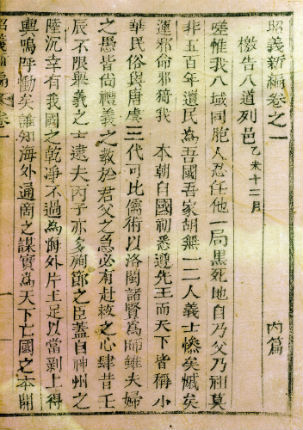 昭義新編卷之一
內篇
檄告八道列邑乙未十二月
嗟惟我八域同胞人忍任他一局黑死地自乃父乃祖莫
非五百年遺民爲吾國吾家胡無一二人義士慘矣慽矣
運邪命邪猗我　本朝自國初悉遵先王而天下皆稱小
華民俗與唐虞三代可比儒術以洛閩諸賢爲師雖夫婦
之愚皆尚禮義之敎於君父之急必有赴救之心肆昔壬
辰不限興義之士逮夫丙子亦多殉節之臣蓋自神州之
陸沉幸有我國之乾凈不過爲海外片土足以當剝上得
輿嗚呼慟矣誰知海外通商之謀實爲天下亡國之本開